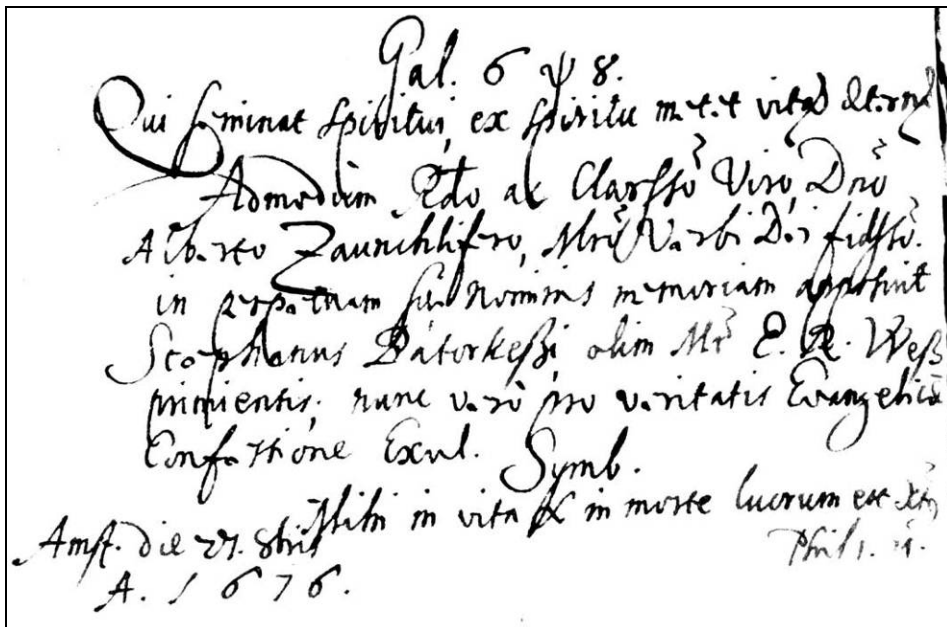 Gal. 6 ℣ 8.
Qui seminat spiritui, ex spiritu metet vitā æternā
Admodum Rdo ac Clarsso Viro, Dno
Alberto Zaunschlifero, Mro Verbi Dei fidsso.
in perpetuam sui Nominis memoriam apposuit
Stephanus Bátorkeßi, olim Mr E. R. Weß
primiensis; nunc verò pro veritatis Evangelicæ
Confessione Exul. Symb.
Mihi in vita & in morte lucrum est Xtus
Amst. die 27. 8bris Phil 1.
A. 1676.